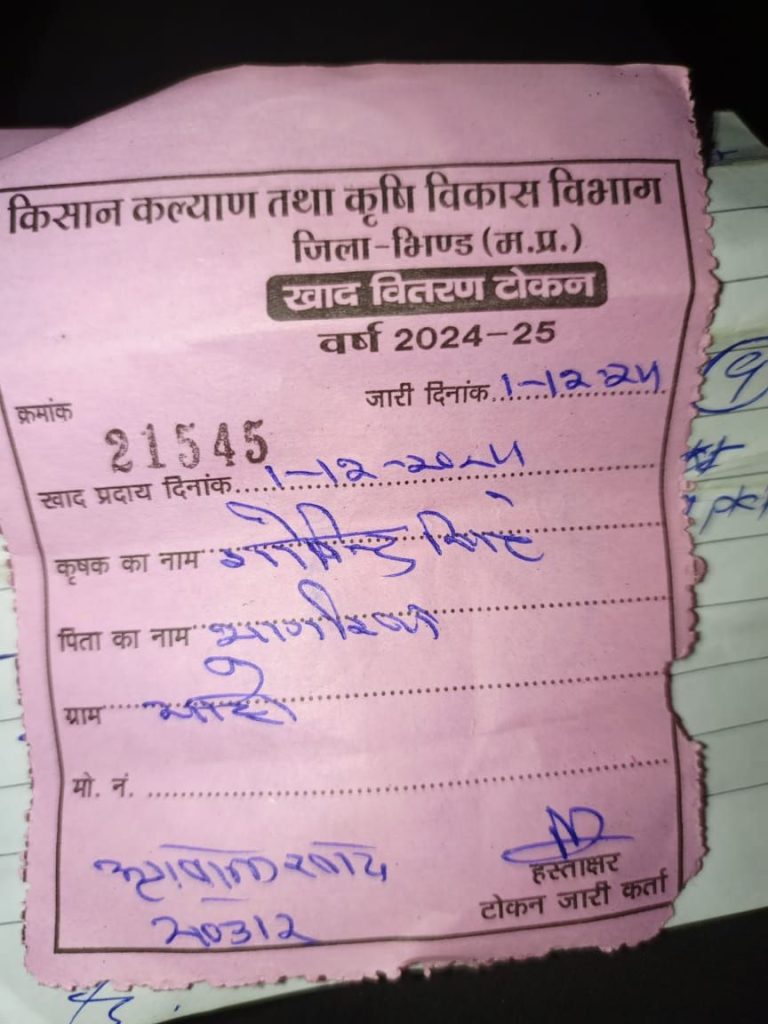 किसान कल्याण तथा कृषि विकास विभाग
जिला-भिण्ड (म.प्र.)
खाद वितरण टोकन
वर्ष 2024-25
जारी दिनांक 1-12-24
क्रमांक
21545
खाद प्रदाय दिनांक 1-12-2024
कृषक का नाम गोविन्द सिंह
पिता का नाम भागीरथ
ग्राम
मो. नं.
हस्ताक्षर
टोकन जारी कर्ता